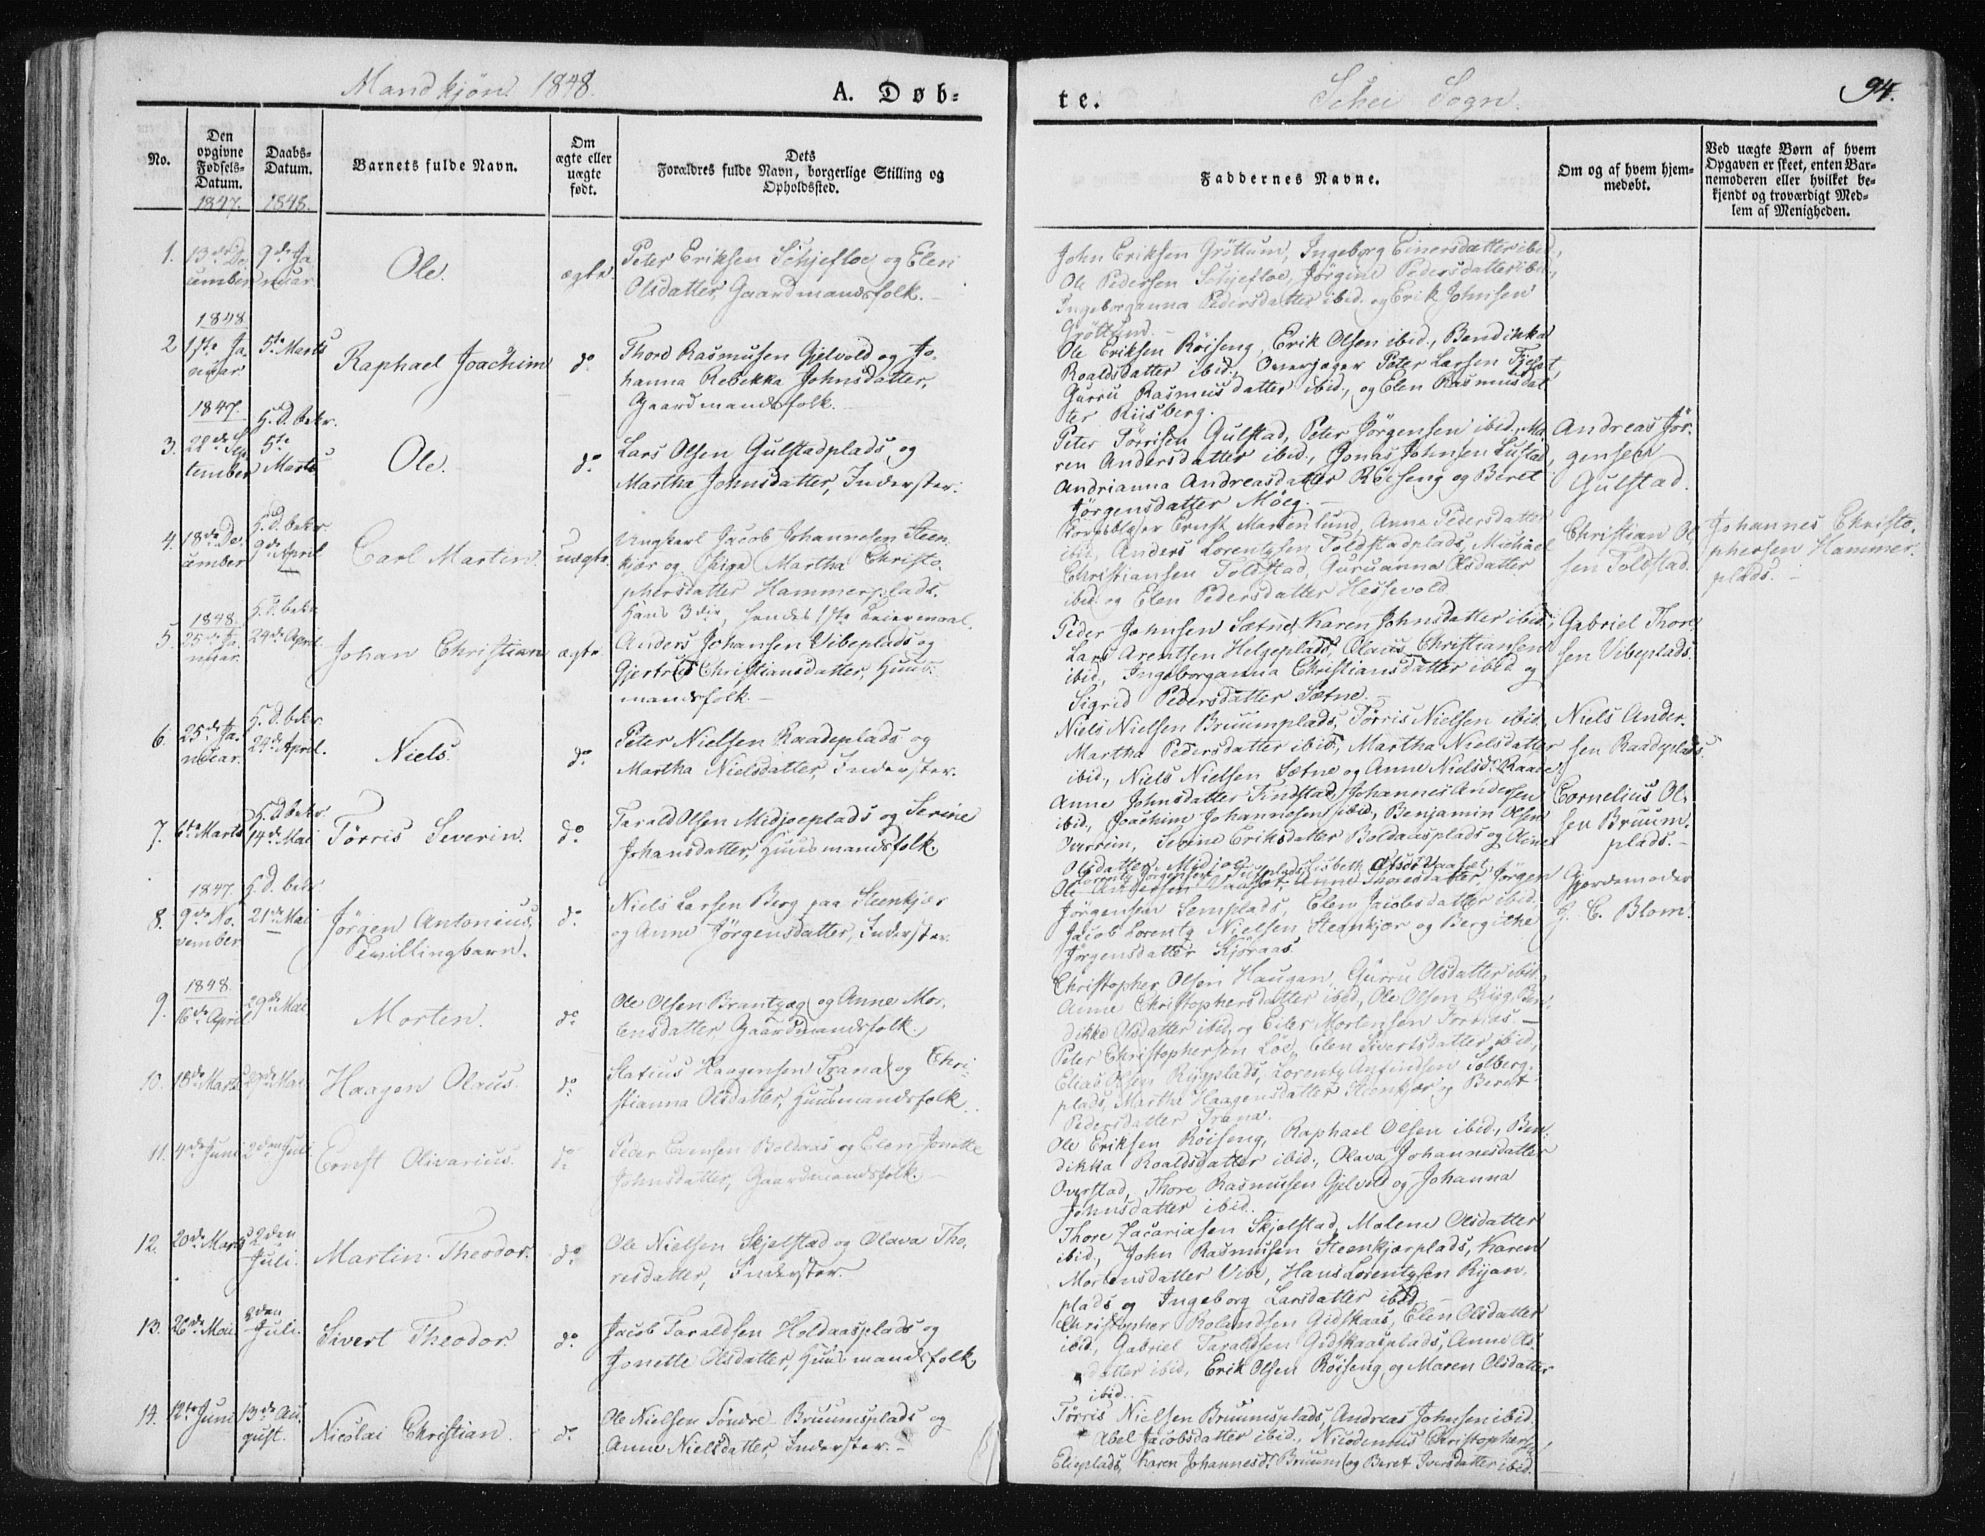 Mandkjøn 1848.
A. Døb-
te.
Schei Sogn.
94.
No.
Den opgivne Fødsels-Datum.
Daabs-Datum.
Barnets fulde Navn.
Om ægte eller uægte født.
Dets Forældres fulde Navn, borgerlige Stilling og Opholdssted.
Faddernes Navne.
Om og af hvem hjem-medøbt.
Ved uægte Børn af hvem Opgaven er skeet, enten Bar-nemoderen eller hvilket be-kjendt og troværdigt Med-lem af Menigheden.
1847.
1848.
1.
13de De-
cember
9de Ja-
nuar.
Ole.
ægte
Peter Eriksen Schjefloe og Elen
Olsdatter Gaardmandsfolk.
John Eriksen Grøttum, Ingeborg Einersdatter ibid,
Ole Pedersen Schjefloe, Jørgine Pedersdatter ibid,
Ingeborganna Pedersdatter ibid. og Erik Johnsen
Grøttum.
1848.
2
17de Ja-
nuar
5te Marts
Raphael Joachim
do
Thore Rasmusen Gjelvold og Jo-
hanna Rebekka Johnsdatter,
Gaardmandsfolk.
Ole Eriksen Røiseng, Erik Olsen ibid., Bendikka
Roaldsdatter ibid., Overjæger Peter Larsen
Gurru Rasmusdatter ibid., og Elen Rasmusdat-
ter Riisberg.
1847.
3.
28de Sep-
tember
H.D. bekr.
5te
Marts
Ole.
do
Lars Olsen Gulstadplads og
Martha Johnsdatter, Inderster.
Peter Tørrisen Gulstad, Peter Jørgensen ibid., Ma-
ren Andersdatter ibid., Jonas Johnsen Lustad,
Andrianna Andreasdatter Røiseng og Beret
Jørgensdatter Møeg.
Andreas Jør-
gensen
Gulstad.
4.
18de De-
cember
H.D. bekr.
9de April
Carl Martin.
uægte
Ungkarl Jacob Johannesen Steen-
kjær og Pige Martha Christo-
phersdatter Hammerplads.
Hans 3die, hendes 1ste Leiermaal.
Ernst Marienlund, Anna Pedersdatter
ibid, Anders Lorentzsen Foldstadplads, Michael
Christiansen Foldstad, Guruanna Olsdatter
ibid. og Elen Pedersdatter Hessevold
Christian Ol-
sen Foldstad.
Johannes Christo-
phersen Hammer-
plads.
1848.
5.
25de Ja-
nuar.
H.D. bekr.
24de April.
Johan Christian
ægte
Anders Johansen Vibeplads og
Gjertrud Christiansdatter, Huus-
mandsfolk.
Peder Johnsen Sætne, Karen Johnsdatter ibid,
Lars Arentsen Helgeplads, Olaus Christiansen
ibid, Ingeborganna Christiansdatter ibid og
Sigrid Pedersdatter Sætne.
Gabriel Thore-
sen Vibeplads.
6.
25de Ja-
nuar.
H.D. bekr.
24de April.
Niels.
do
Peter Nielsen Raadeplads og
Martha Nielsdatter, Inderster.
Niels Nielsen Bruumplads, Tørris Nielsen ibid.
Martha Pedersdatter ibid, Martha Nielsdatter
ibid, Niels Nielsen Sætne og Anne Nielsdr. Raade.
Niels Ander-
sen Raadeplads.
7.
6te Marts
H.D. bekr.
14de Mai
Tørris Severin.
do
Tarald Olsen Midjoeplads og Serine
Johansdatter, Huusmandsfolk.
Anne Johnsdatter Findstad, Johannes Andersen
ibid, Joachim Johannesen ibid, Benjamin Olsen
Serine Eriksdatter Boldaasplads og Oline
Olsdatter Midjoe.
Cornelius Ol-
sen Bruum-
plads.
1847.
8.
9de No-
vember
H.D. bekr.
21de Mai
Jørgen Antonius.
Tvillingbarn.
do
Niels Larsen Berg paa Steenkjær
og Anne Jørgensdatter, Inderster.
Anne Thoresdatter, Jørgen
Jørgensen Semplads, Elen Jacobsdatter ibid,
Jacob Lorentz Nielsen Steenkjær og Bergithe
Jørgensdatter Kjøraas
Gjordemoder
G. C. Blom.
1848.
9.
16de April
29de Mai
Morten.
do
Ole Olsen Brantzæg og Anne Mor-
tensdatter, Gaardmandsfolk.
Christopher Olsen Haugan, Gurru Olsdatter ibid,
Anne Christophersdatter ibid, Ole Olsen Ben-
dikke Olsdatter ibid, og Eiler Mortensen
10.
18de Marts
29de Mai
Haagen Olaus.
do
Statius Haagensen Trana og Chri-
stianna Olsdatter, Huusmandsfolk.
Peter Christophersen Løe, Elen Sivertsdatter ibid,
Elias Olsen Rygplads, Lorentz Anfindsen Solberg-
plads, Martha Haagensdatter Steenkjær og Beret
Pedersdatter Trana.
11.
4de Juni
2den Juli
Ernst Olivarius.
do
Peder Evensen Boldaas og Elen Jonette
Johnsdatter, Gaardmandsfolk.
Ole Eriksen Røiseng, Raphael Olsen ibid, Ben-
dikka Roaldsdatter ibid., Olava Johannesdatter
Overstad, Thore Rasmusen Gjelvold og Johanna
Johnsdatter ibid.
12.
20de Marts
2den
Juli.
Martin Theodor.
do
Ole Nielsen Skjelstad og Olava Tho-
resdatter, Inderster.
Thore Zacariasen Skjelstad, Malene Olsdatter
ibid, John Rasmusen Steenkjærplads, Karen
Mortensdatter Vibe, Hans Lorentzsen Ryan-
plads og Ingeborg Larsdatter ibid
13.
26de Mai
2den
Juli.
Sivert Theodor.
do
Jacob Taraldsen Holdaasplads og
Jonette Olsdatter, Huusmandsfolk
Christopher Rolandsen Gidskaas, Elen Olsdatter
ibid, Gabriel Taraldsen Gidskaasplads, Anne Ols-
datter ibid, Erik Olsen Røiseng, og Maren Olsdatter
ibid.
14.
12te Juni
13de Au-
gust.
Nicolai Christian.
do
Ole Nielsen Søndre Bruumsplads og
Anne Nielsdatter, Inderster.
Tørris Nielsen Bruumsplads, Andreas Johnsen ibid.
Abel Jacobsdatter ibid, Nicodemus Christophersen
Elieplads, Karen Johannesdr. Bruum og Beret Iversdatter ibid.